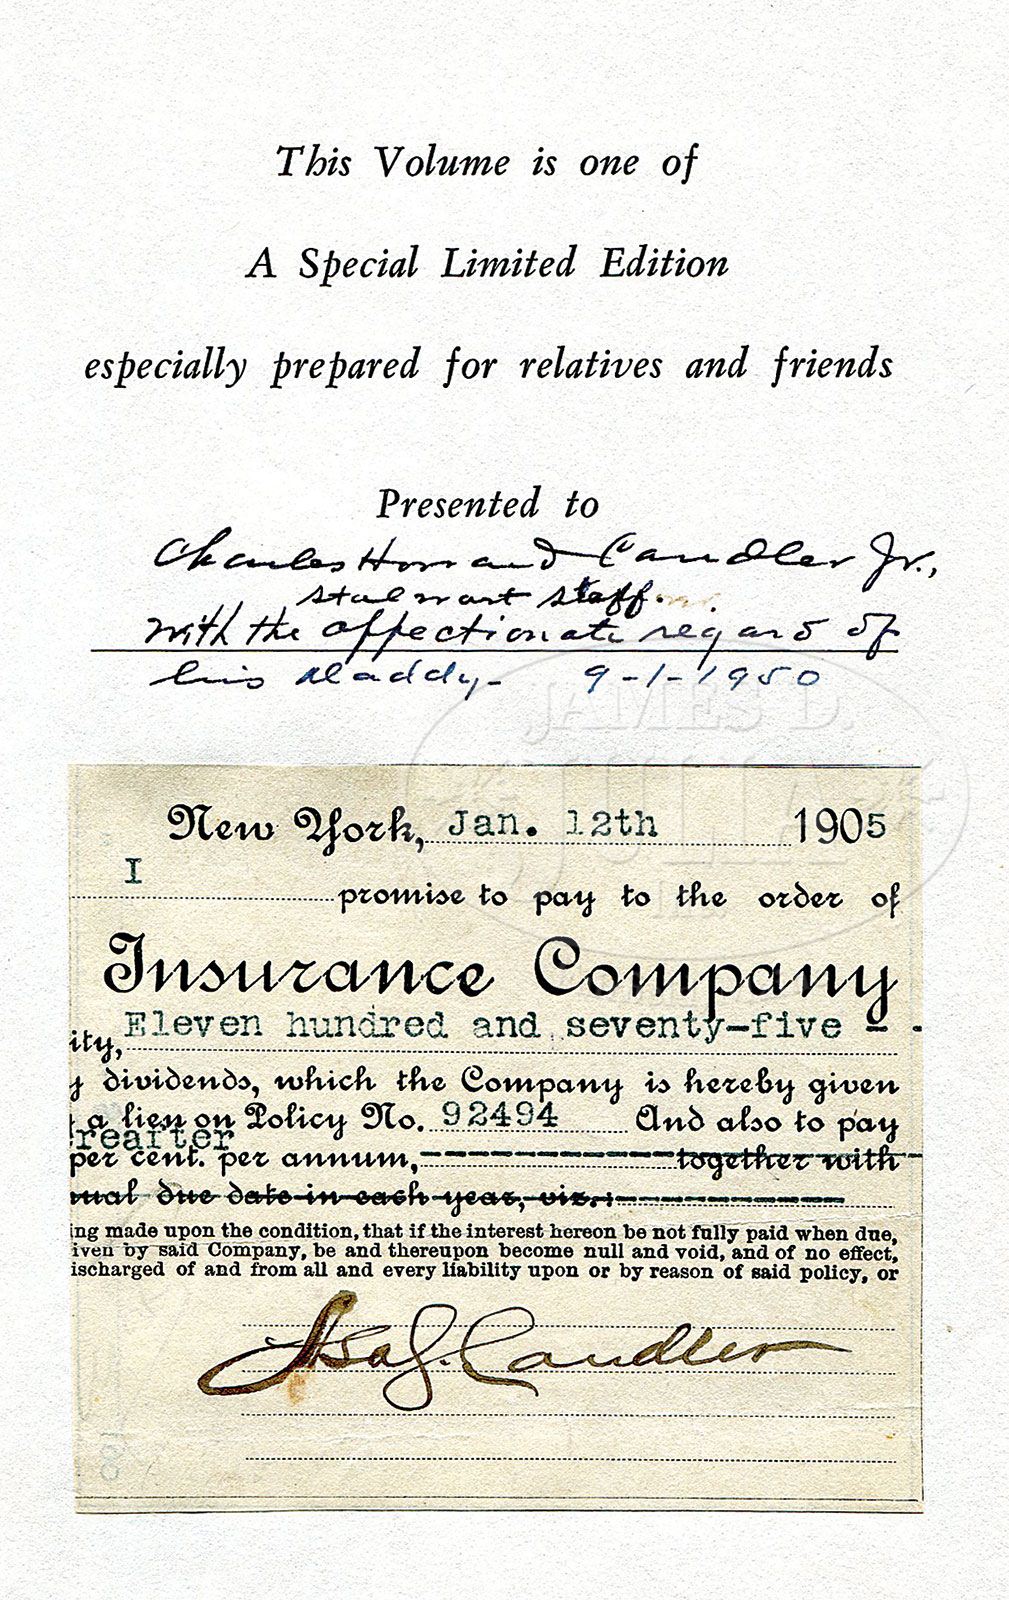 This Volume is one of
A Special Limited Edition
especially prepared for relatives and friends
Presented to
Charles Howard Candler Jr.,
stalwart staff.
with the affectionate regard of
his daddy- 9-1-1950
JAMES D.
JULIA
New York, Jan. 12th 1905
I promise to pay to the order of
Insurance Company
ity, Eleven hundred and seventy-five - -
y dividends, which the Company is hereby given
a lien on Policy No. 92494 And also to pay
reafter
per cent. per annum, together with
nual due date in each year, viz.:
ing made upon the condition, that if the interest hereon be not fully paid when due,
iven by said Company, be and thereupon become null and void, and of no effect,
ischarged of and from all and every liability upon or by reason of said policy, or
Asa G. Candler